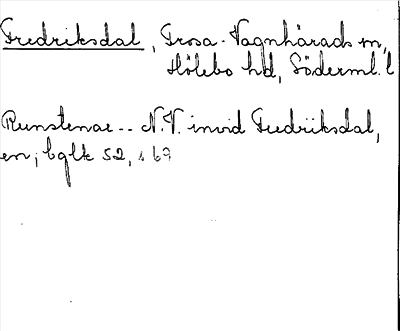 Fredriksdal, Trosa-Vagnhärads sn,
Hölebo hd, Söderml. l
Runstenar -- N.V. invid Fredriksdal,
en; bglk 52, s 67